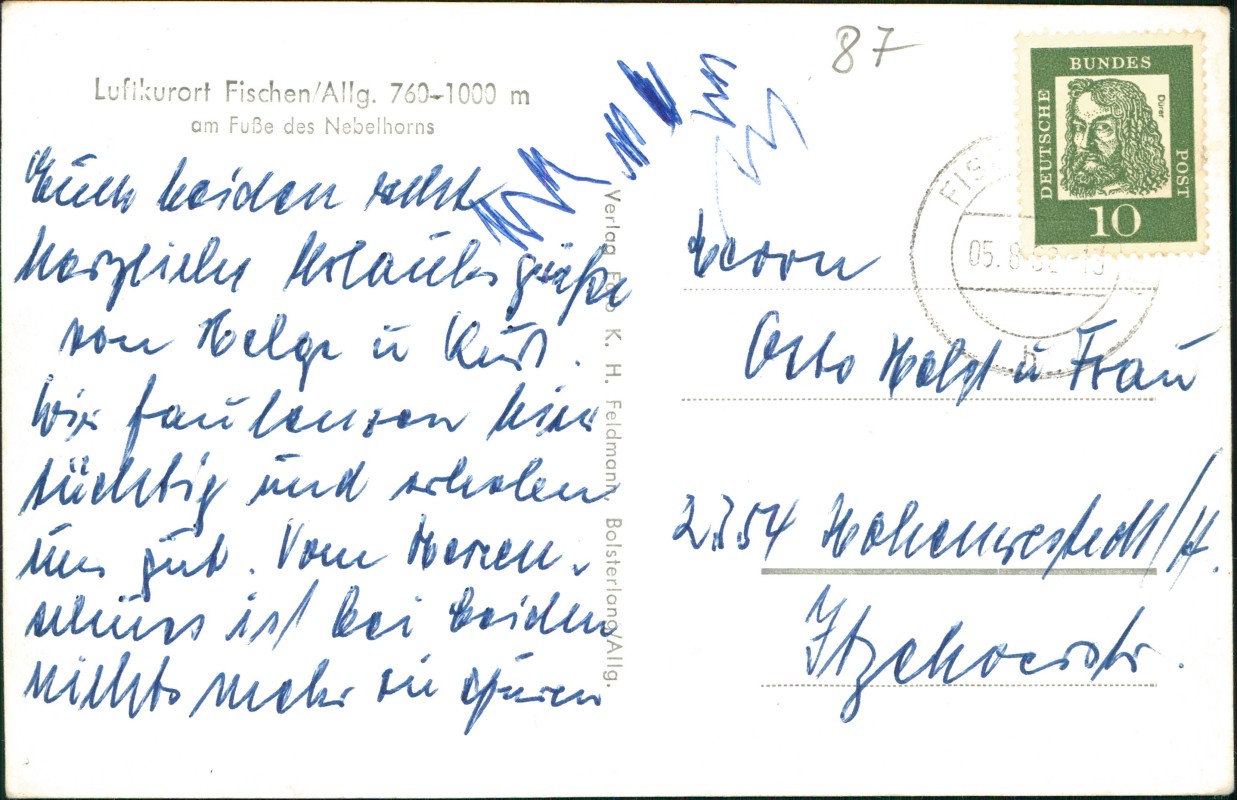 Luftkurort Fischen/Allg. 760–1000 m
am Fuße des Nebelhorns
Euch beiden recht
herzliche Urlaubsgrüße
von Helga u Kurt.
Wir faulenzen hier
tüchtig und erholen
uns gut. Vom Hexen-
schuss ist bei beiden
nichts mehr zu spüren
Verlag Foto K. H. Feldmann, Bolsterlang/Allg.
87
DEUTSCHE
BUNDES
POST
Dürer
10
FIS
05.8.62-18
b
Herrn
Otto Holst u Frau
2354 Hohenwestedt/H.
Itzehoerstr.